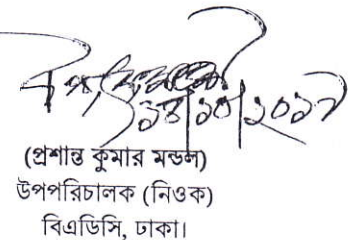 ১৪/১০/২০১৭
(প্রশান্ত কুমার মন্ডল)
উপপরিচালক (নিওক)
বিএডিসি, ঢাকা।